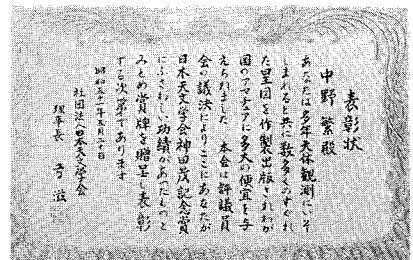 表彰状
中野繁殿
あなたは多年天体観測にいそ
しまれると共に数多くのすぐれ
た星図を作製出版されわが
国のアマチュアに多大の便宜を与
えられました 本会は評議員
会の議決によりここにあなたが
日本天文学会神田茂記念賞
にふさわしい功績があったものと
みとめ賞牌を贈呈し表彰
する次第であります
昭和五十一年五月
社団法人日本天文学会
理事長